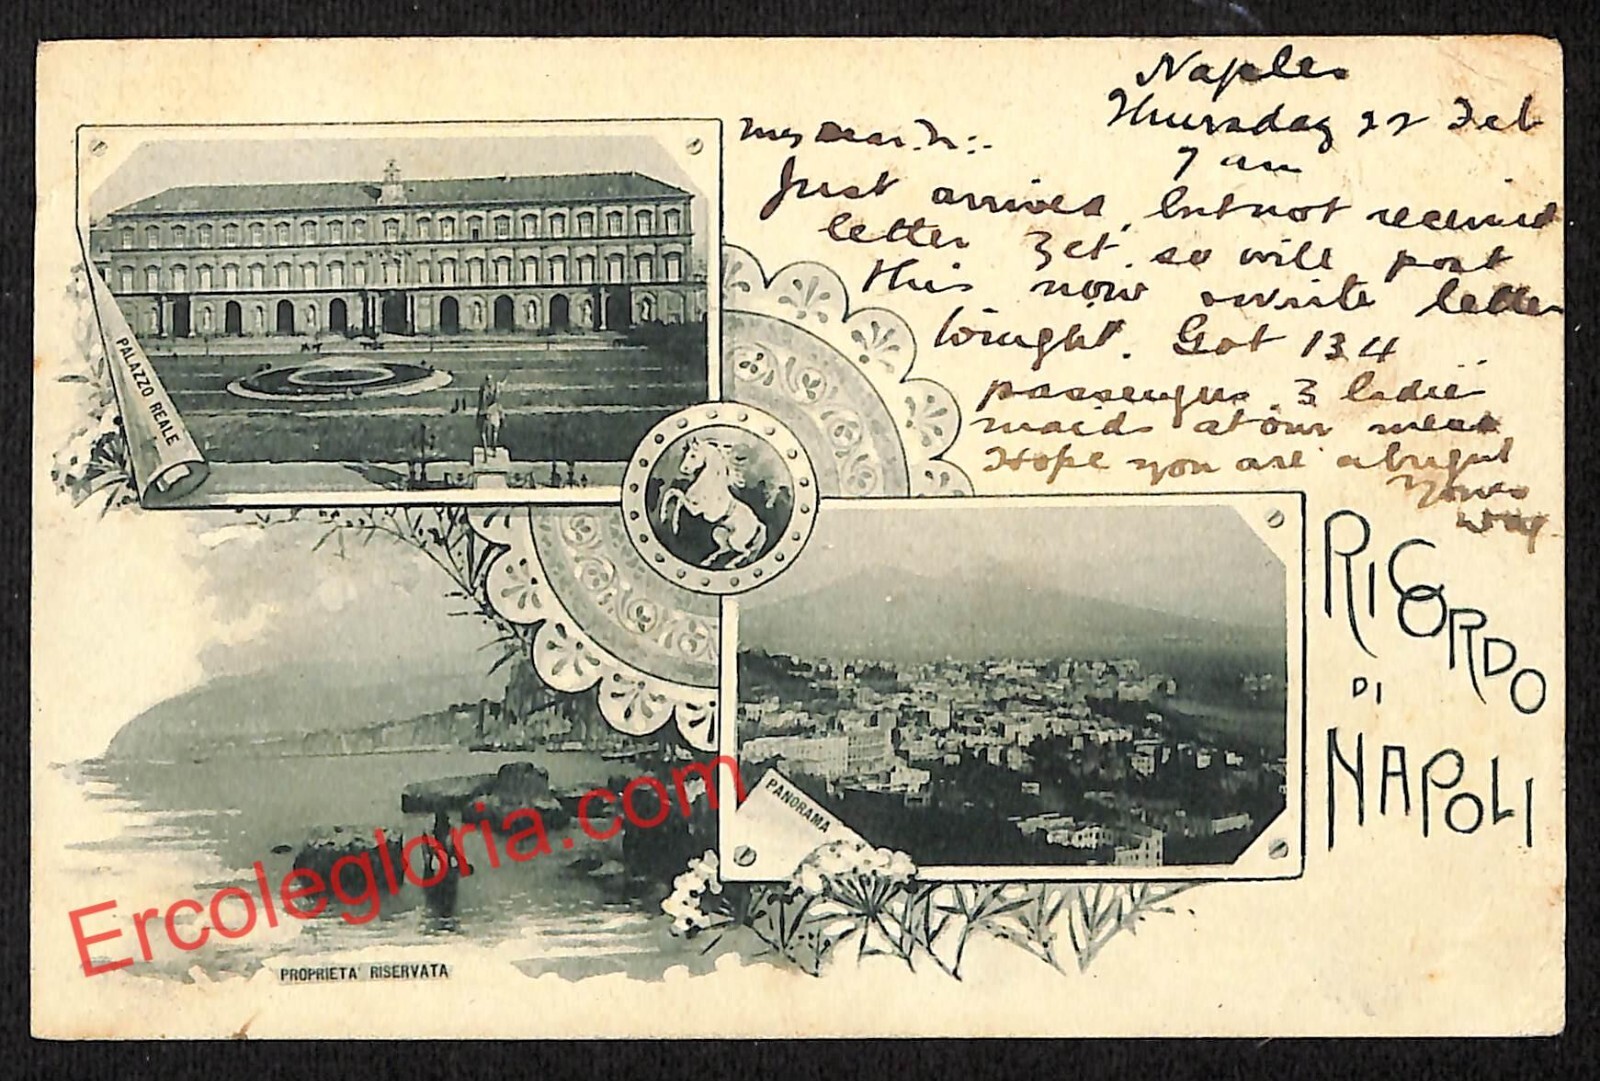 Naples
Thursday 22 Feb
7 am
My dear
Just arrived, but not received
letter yet. so will post
this now & write letter
tonight. Got 134
passengers 3 ladies
maids at our mess
Hope you are alright
Yours
PALAZZO REALE
RICORDO
DI
NAPOLI
PANORAMA
PROPRIETA' RISERVATA
Ercolegloria.com